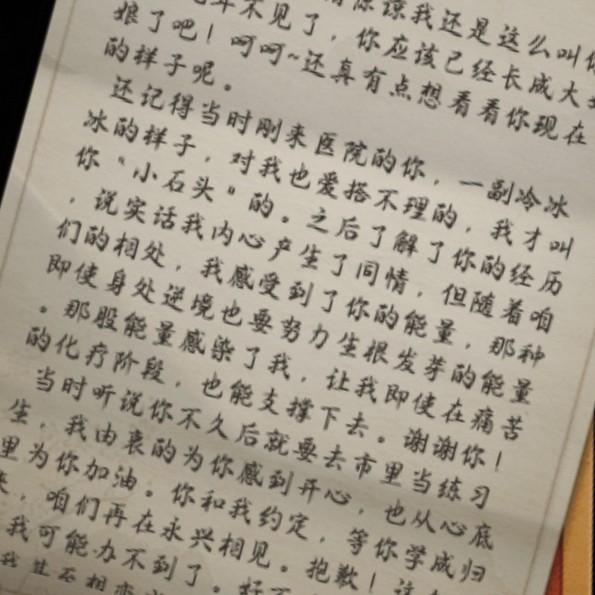 年不见了，你应该已经长成大
谅我还是这么叫你
娘了吧！呵呵~还真有点想看看你现在
的样子呢。
还记得当时刚来医院的你，一副冷冰
冰的样子，对我也爱搭不理的，我才叫
你“小石头”的。之后了解了你的经历
，说实话我内心产生了同情，但随着咱
们的相处，我感受到了你的能量，那种
即使身处逆境也要努力生根发芽的能量
。那股能量感染了我，让我即使在痛苦
的化疗阶段，也能支撑下去。谢谢你！
当时听说你不久后就要去市里当练习
生，我由衷的为你感到开心，也从心底
里为你加油。你和我约定，等你学成归
来，咱们再在永兴相见。抱歉！
我可能办不到了。